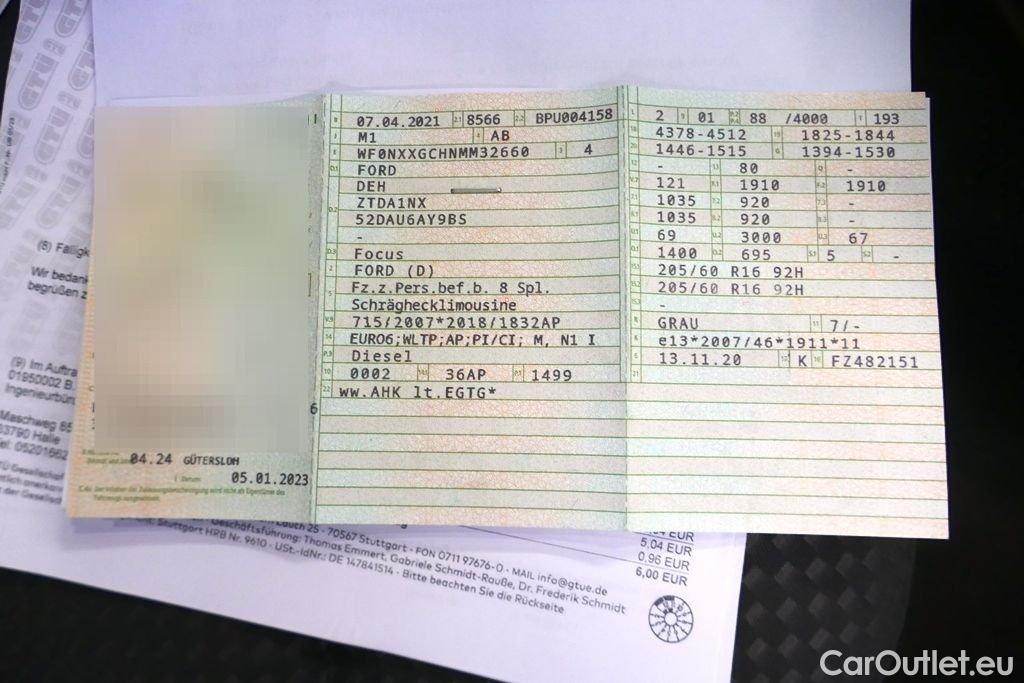 GTÜ
(8) Fälligk
Wir bedank
begrüßen z
(9) Im Auftra
01950002 B.
Ingenieurbür
Maschweg 85
33790 Halle
Tel: 05201662
07.04.2021 8566 BPU004158
M1 AB
WF0NXXGCHNMM32660 4
FORD
DEH
ZTDA1NX
52DAU6AY9BS
-
Focus
FORD (D)
Fz.z.Pers.bef.b. 8 Spl.
Schräghecklimousine
715/2007*2018/1832AP
EURO6;WLTP;AP;PI/CI; M, N1 I
Diesel
0002 36AP 1499
ww.AHK lt.EGTG*
2 01 88 /4000 193
4378-4512 1825-1844
1446-1515 1394-1530
- 80 -
121 1910 1910
1035 920 -
1035 920 -
69 3000 67
1400 695 5 -
205/60 R16 92H
205/60 R16 92H
-
GRAU 7/-
e13*2007/46*1911*11
13.11.20 K FZ482151
6
04.24 GÜTERSLOH
Datum
05.01.2023
C.4c. Der Inhaber der Zulassungsbescheinigung wird nicht als Eigentümer des
Fahrzeugs ausgewiesen.
25 · 70567 Stuttgart · FON 0711 97676-0 · MAIL info@gtue.de
Geschäftsführung: Thomas Emmert, Gabriele Schmidt-Rauße, Dr. Frederik Schmidt
Stuttgart HRB Nr. 9610 · USt.-IdNr.: DE 147841514 · Bitte beachten Sie die Rückseite
EUR
5,04 EUR
0,96 EUR
6,00 EUR
CarOutlet.eu